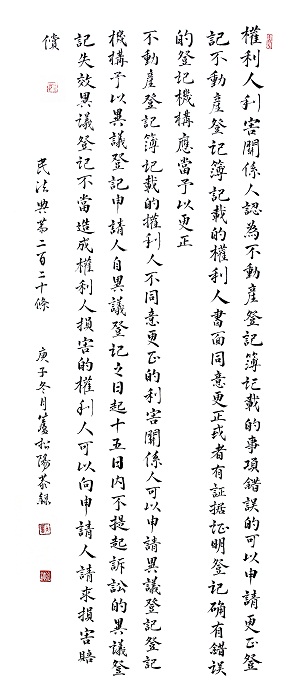 權利人利害關係人認為不動產登記簿記載的事項錯誤的可以申請更正登
記不動產登記簿記載的權利人書面同意更正或者有証据证明登記确有錯誤
的登記機構應當予以更正
不動產登記簿記載的權利人不同意更正的利害關係人可以申請異議登記登記
機構予以異議登記申請人自異議登記之日起十五日内不提起訴訟的異議登
記失效異議登記不當造成權利人損害的權利人可以向申請人請求損害賠
償
民法典第二百二十條 庚子冬月蘆松陽恭錄